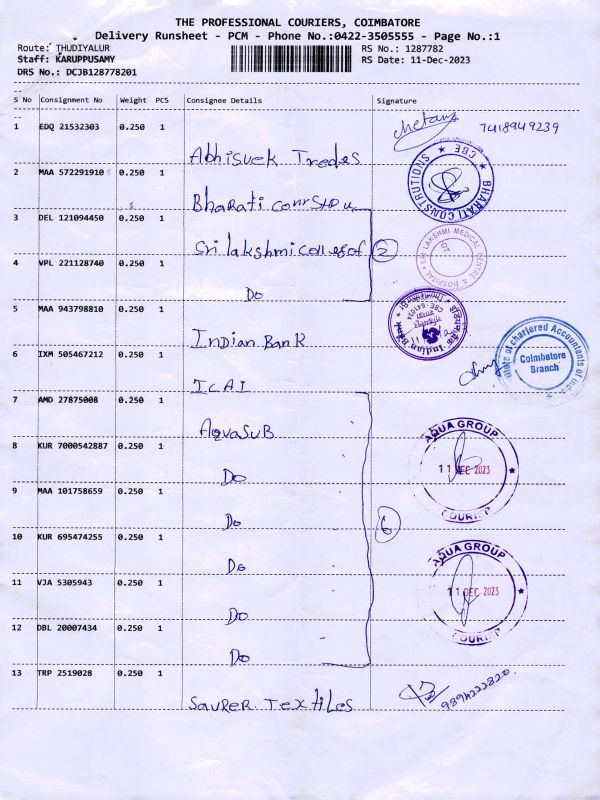 THE PROFESSIONAL COURIERS, COIMBATORE
Delivery Runsheet - PCM - Phone No.:0422-3505555 - Page No.:1
Route: THUDIYALUR RS No.: 1287782
Staff: KARUPPUSAMY RS Date: 11-Dec-2023
DRS No.: DCJB128778201
S No Consignment No Weight PCS Consignee Details Signature
1 EDQ 21532303 0.250 1 Abhisuek Tredes Chetan 7418949239
2 MAA 572291910 0.250 1 Bharati Constru
BHARATI CONSTRUTIONS ★ CBE ★
3 DEL 121094450 0.250 1 Sri lakshmi college of 2
SRI LAKSHMI MEDICAL CENTRE & HOSPITAL
4 VPL 221128740 0.250 1 Do
5 MAA 943798810 0.250 1 Indian Bank
Indian Bank
6 IXM 505467212 0.250 1 ICAI
Institute of Chartered Accountants of India
Coimbatore
Branch
7 AMD 27875008 0.250 1 AQuaSuB
AQUA GROUP
11 DEC 2023
COURIER
8 KUR 7000542887 0.250 1 Do
9 MAA 101758659 0.250 1 Do 6
10 KUR 695474255 0.250 1 Do
AQUA GROUP
11 DEC 2023
COURIER
11 VJA 5305943 0.250 1 Do
12 DBL 20007434 0.250 1 Do
13 TRP 2519028 0.250 1 Saurer Textiles 9894222820